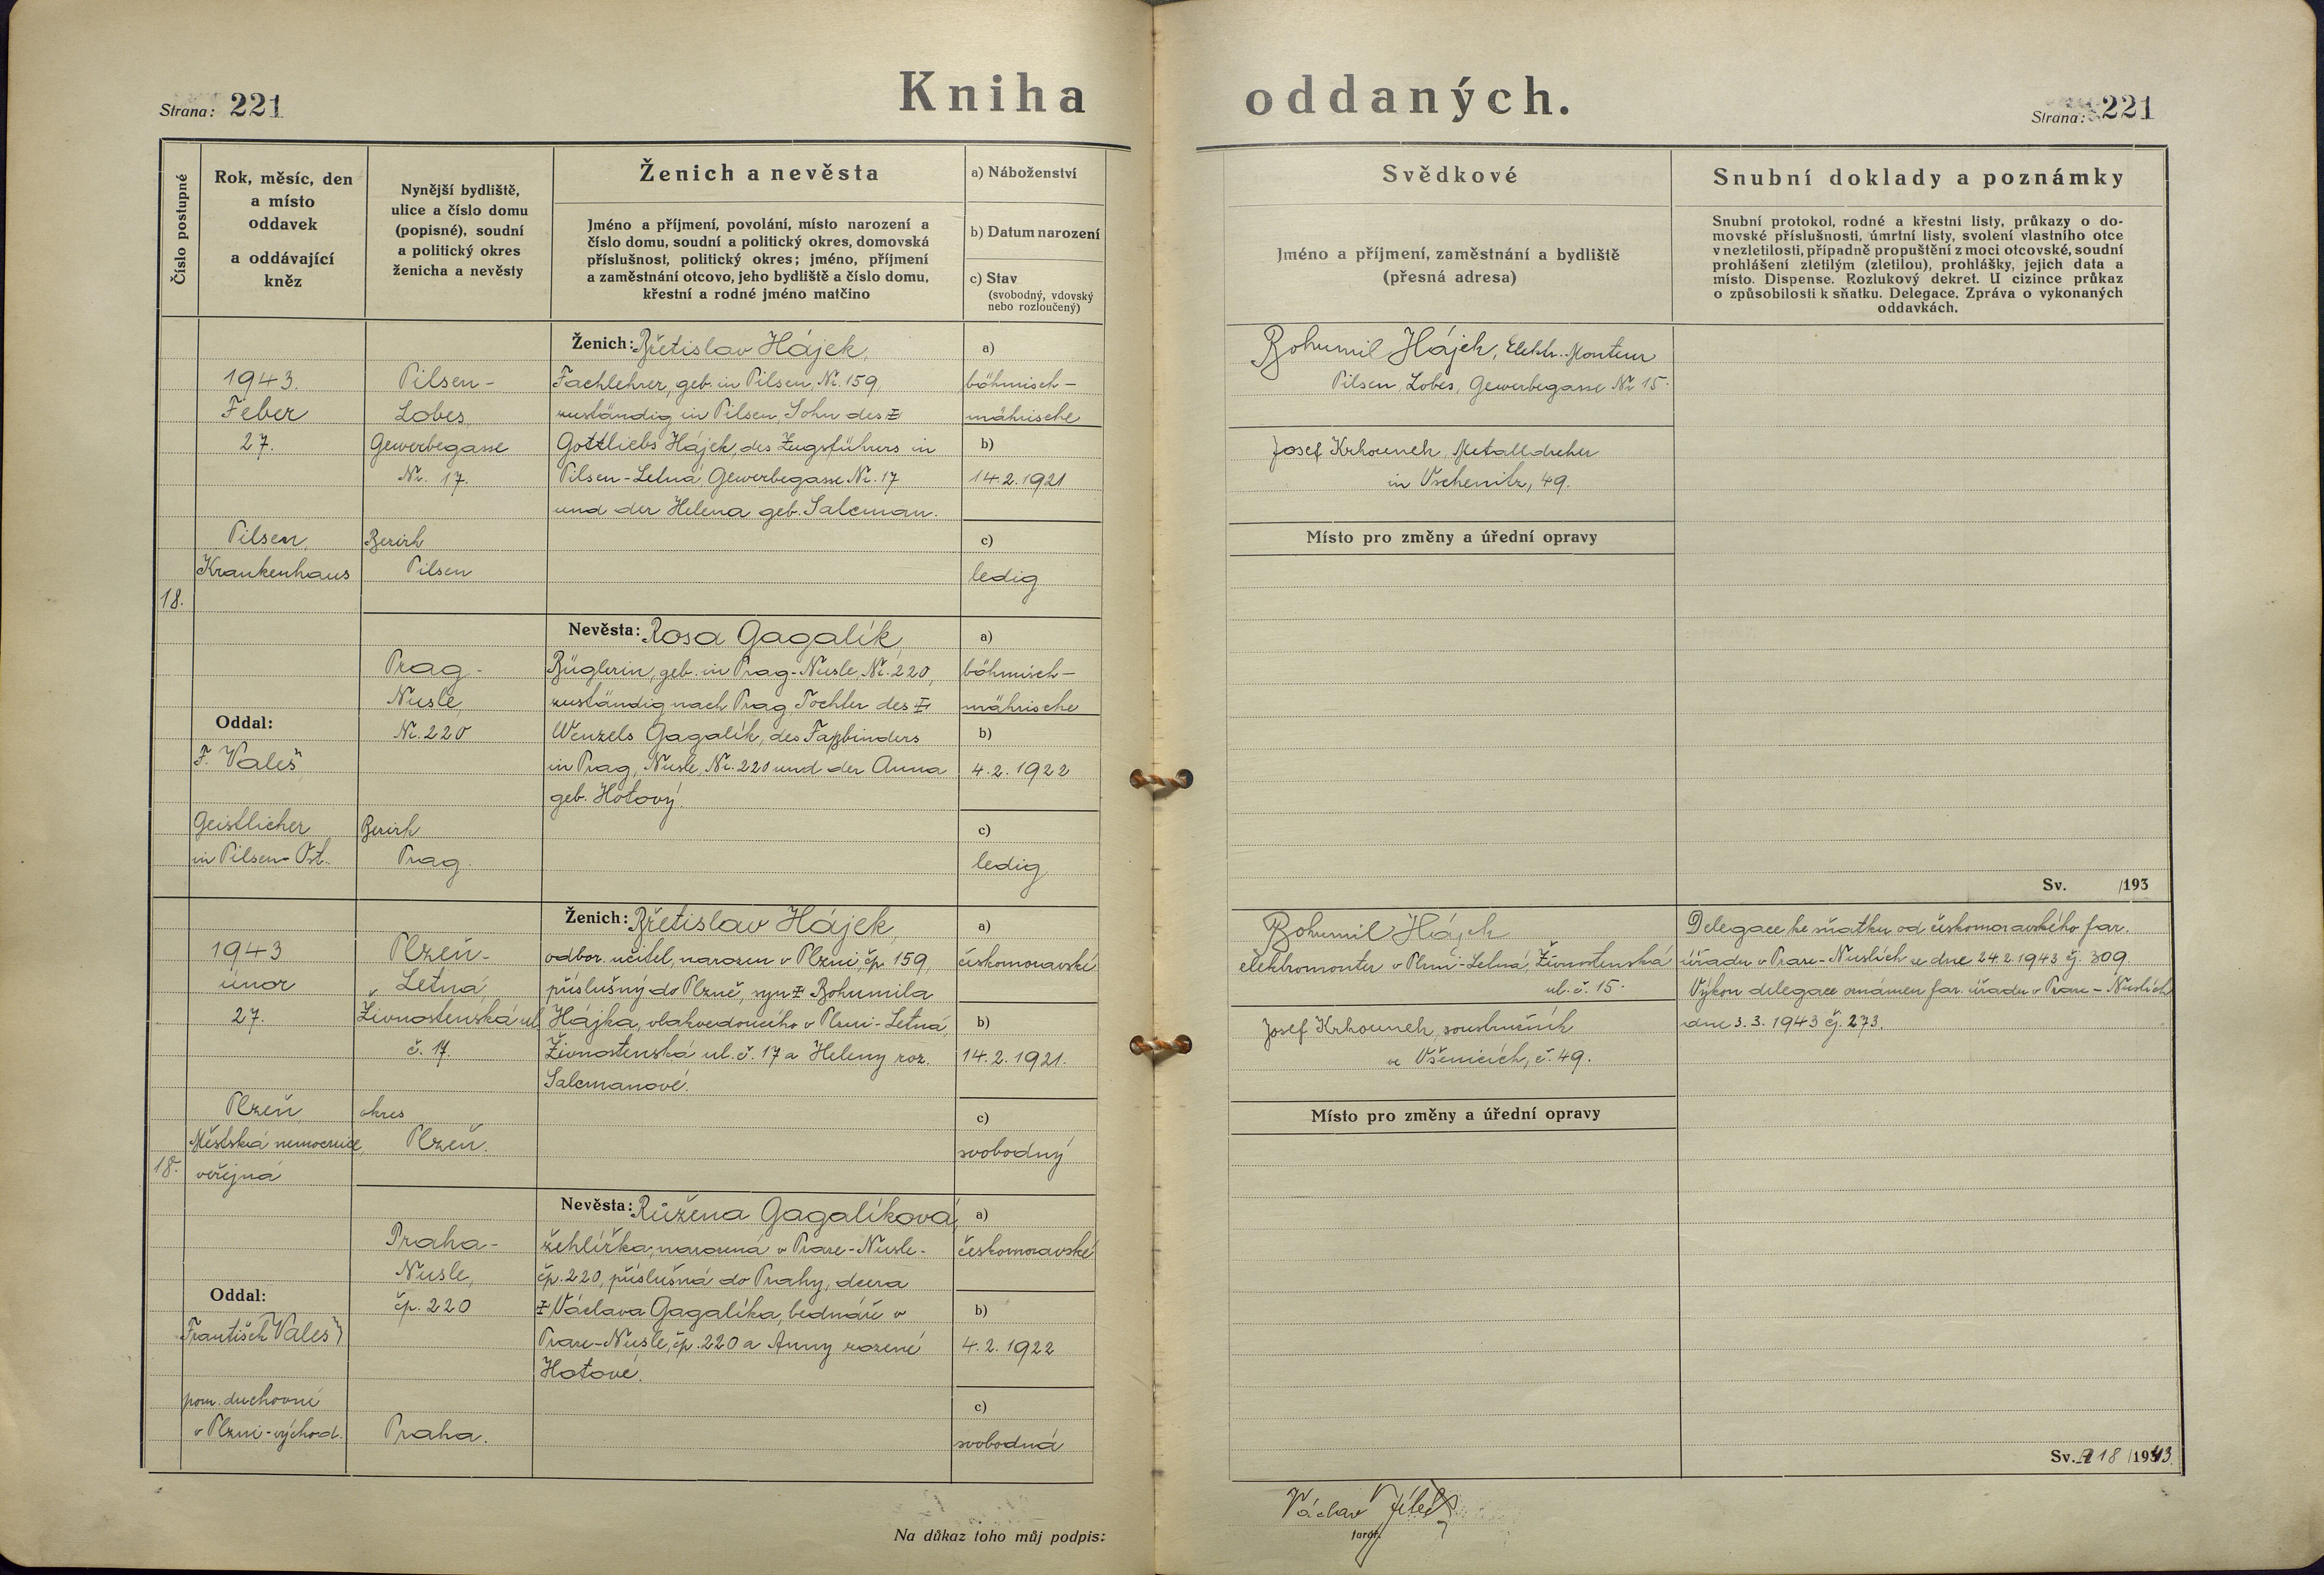 Kniha oddaných.
Strana: 221
Strana: 221
Číslo postupné
Rok, měsíc, den
a místo
oddavek
a oddávající
kněz
Nynější bydliště,
ulice a číslo domu
(popisné), soudní
a politický okres
ženicha a nevěsty
Ženich a nevěsta
Jméno a příjmení, povolání, místo narození a
číslo domu, soudní a politický okres, domovská
příslušnost, politický okres; jméno, příjmení
a zaměstnání otcovo, jeho bydliště a číslo domu,
křestní a rodné jméno matčino
a) Náboženství
b) Datum narození
c) Stav
(svobodný, vdovský
nebo rozloučený)
Svědkové
Jméno a příjmení, zaměstnání a bydliště
(přesná adresa)
Snubní doklady a poznámky
Snubní protokol, rodné a křestní listy, průkazy o do-
movské příslušnosti, úmrtní listy, svolení vlastního otce
v nezletilosti, případně propuštění z moci otcovské, soudní
prohlášení zletilým (zletilou), prohlášky, jejich data a
místo. Dispense. Rozlukový dekret. U cizince průkaz
o způsobilosti k sňatku. Delegace. Zpráva o vykonaných
oddavkách.
18.
1943.
Feber
27.
Pilsen,
Krankenhaus
Oddal:
F. Valeš
Geistlicher
in Pilsen-Ost.
Pilsen-
Lobes,
Gewerbegasse
Nr. 17.
Bezirk
Pilsen
Ženich: Břetislav Hájek,
Fachlehrer, geb. in Pilsen, Nr. 159,
zuständig in Pilsen, Sohn des
Gottliebs Hájek, des Zugsführers in
Pilsen-Letná, Gewerbegasse Nr. 17
und der Helena geb. Salcman.
a)
böhmisch-
mährische
b)
14.2.1921
c)
ledig
Prag-
Nusle,
Nr. 220
Bezirk
Prag.
Nevěsta: Rosa Gagalík,
Büglerin, geb. in Prag-Nusle, Nr. 220,
zuständig nach Prag, Tochter des
Wenzels Gagalík, des Faßbinders
in Prag, Nusle, Nr. 220 und der Anna
geb. Hotový.
a)
böhmisch-
mährische
b)
4.2.1922
c)
ledig
Bohumil Hájek, Elektr.-Monteur
Pilsen, Lobes, Gewerbegasse Nr 15.
Josef Krhounek, Metalldreher
in Vschenitz, 49.
Místo pro změny a úřední opravy
Sv. /193
18.
1943
únor
27.
Plzeň,
Městská nemocnice,
veřejná
Oddal:
František Valeš
pom. duchovní
v Plzni-východ.
Plzeň-
Letná
Živnostenská ul.
č. 17.
okres
Plzeň.
Ženich: Břetislav Hájek,
odbor. učitel, narozen v Plzni, čp. 159,
příslušný do Plzně, syn Bohumila
Hájka, vlakvedoucího v Plzni-Letná,
Živnostenská ul. č. 17 a Heleny roz.
Salcmanové.
a)
českomoravské
b)
14.2.1921.
c)
svobodný
Praha-
Nusle,
čp. 220
Praha.
Nevěsta: Růžena Gagalíková,
žehlířka, narozená v Praze-Nusle-
čp. 220, příslušná do Prahy, dcera
Václava Gagalíka, bednáře v
Praze-Nusle, čp. 220 a Anny rozené
Hotové.
a)
českomoravské
b)
4.2.1922
c)
svobodná
Bohumil Hájek
elektromonter v Plzni-Letná, Živnostenská
ul. č. 15.
Josef Krhounek, soustružník
ve Všenicích, č. 49.
Místo pro změny a úřední opravy
Delegace ke sňatku od českomoravského far.
úřadu v Praze-Nuslích ze dne 24.2.1943 čj. 309.
Výkon delegace oznámen far. úřadu v Praze-Nuslích
dne 3.3.1943 čj. 273.
Sv. 18 /1943.
Na důkaz toho můj podpis:
Václav
farář.